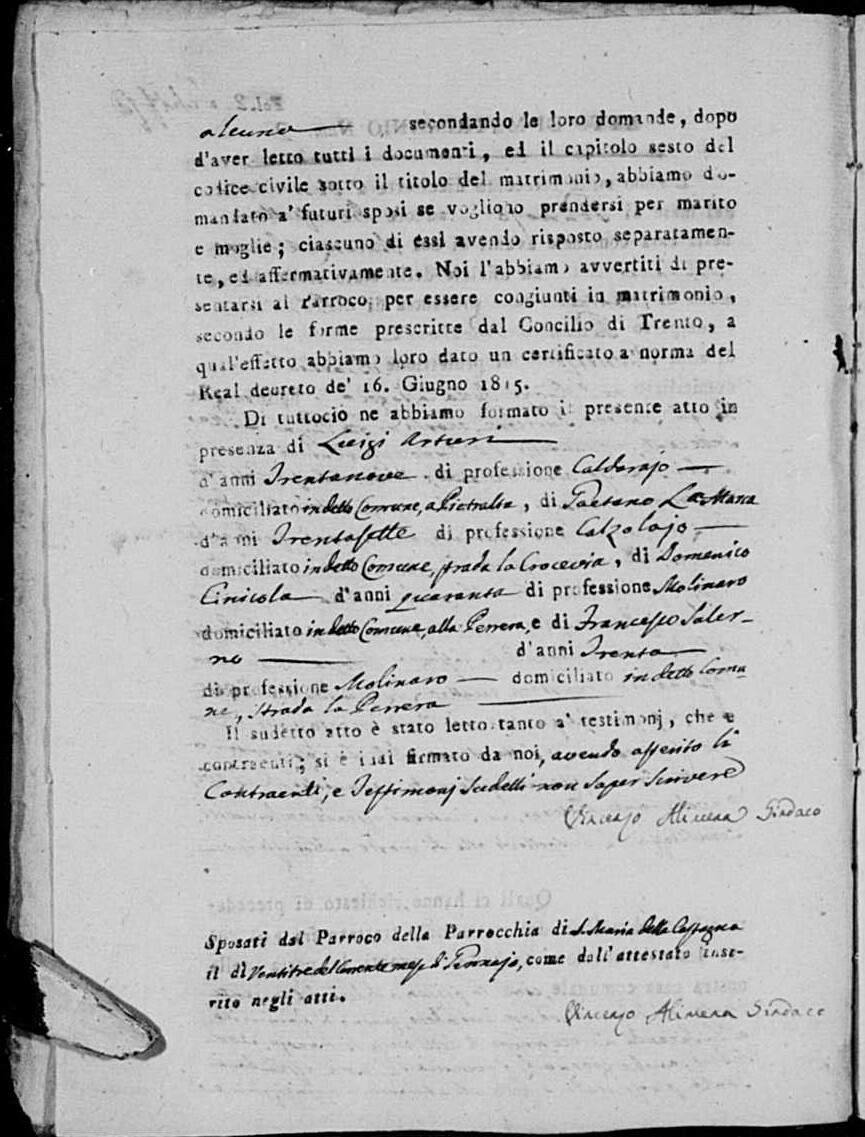 alcuna secondando le loro domande, dopo
d'aver letto tutti i documenti, ed il capitolo sesto del
codice civile sotto il titolo del matrimonio, abbiamo do-
mandato a' futuri sposi se vogliono prendersi per marito
e moglie; ciascuno di essi avendo risposto separatamen-
te, ed affermativamente. Noi l'abbiamo avvertiti di pre-
sentarsi al Parroco, per essere congiunti in matrimonio,
secondo le forme prescritte dal Concilio di Trento, a
qual'effetto abbiamo loro dato un certificato a norma del
Real decreto de' 16. Giugno 1815.
Di tuttociò ne abbiamo formato il presente atto in
presenza di Luigi Arturi
d'anni Trentanove di professione Caldarajo
domiciliato in detto Comune, a Pietralta, di Gaetano La Marca
d'anni Trentasette di professione Calzolajo
domiciliato in detto Comune, strada la Crocevia, di Domenico
Cinicola d'anni quaranta di professione Molinaro
domiciliato in detto Comune, alla Perrera, e di Francesco Saler-
no d'anni Trenta
di professione Molinaro domiciliato in detto Comu-
ne, strada la Perrera
Il sudetto atto è stato letto tanto a' testimonj, che a
contraenti; si è indi firmato da noi, avendo asserito li
Contraenti, e Testimonj sudetti non saper scrivere
Vincenzo Alimena Sindaco
Sposati dal Parroco della Parrocchia di S. Maria della
il dì Ventitre del Corrente mese di Gennajo, come dall'attestato inse-
rito negli atti.
Vincenzo Alimena Sindaco